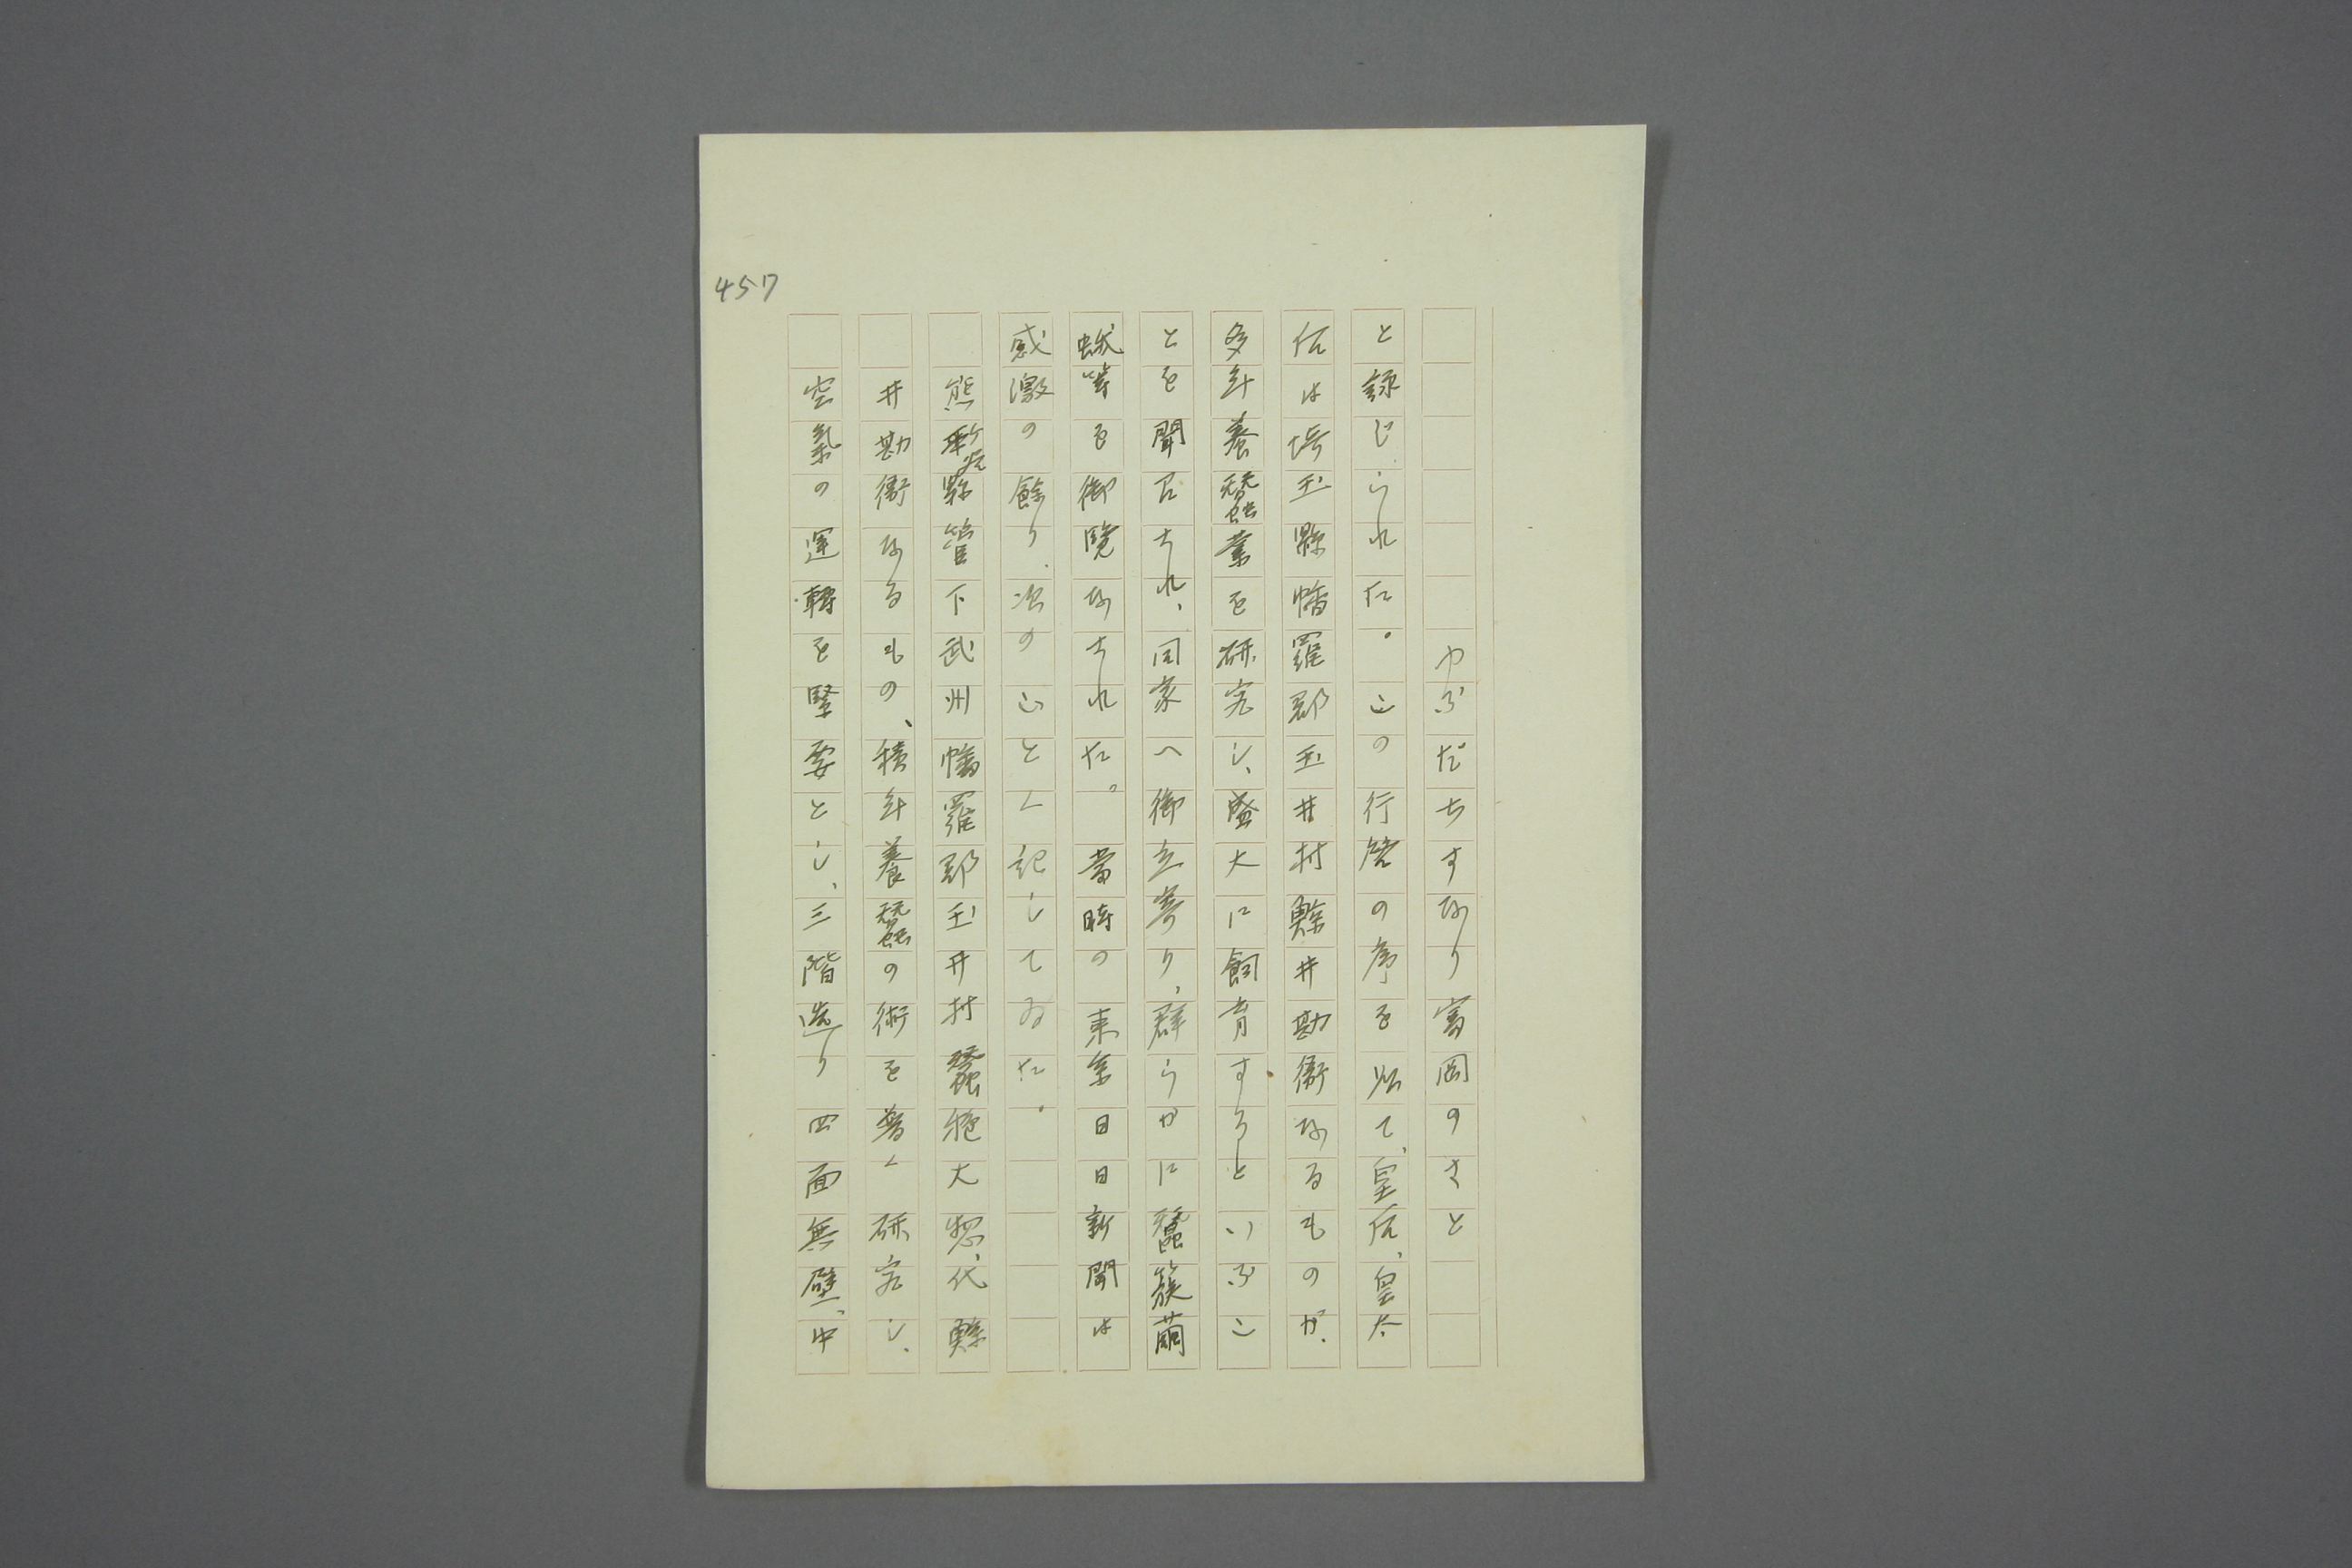 457
ゆふだちすなり富岡のさと
と詠じられた。この行啓の序を以て、皇后、皇太
后は埼玉縣幡羅郡玉井村鯨井勘衞なるものが、
多年養蠶業を研究し、盛大に飼育するといふこ
とを聞召され、同家へ御立寄り、群らかに蠶簇繭
蛾等を御覧なされた。當時の東京日日新聞は
感激の餘り、次のことく記してゐた。
熊谷縣管下武州幡羅郡玉井村蠶種大惣代鯨
井勘衞なるもの、積年養蠶の術を普く研究し、
空氣の運轉を緊要とし、三階造り四面無壁、中